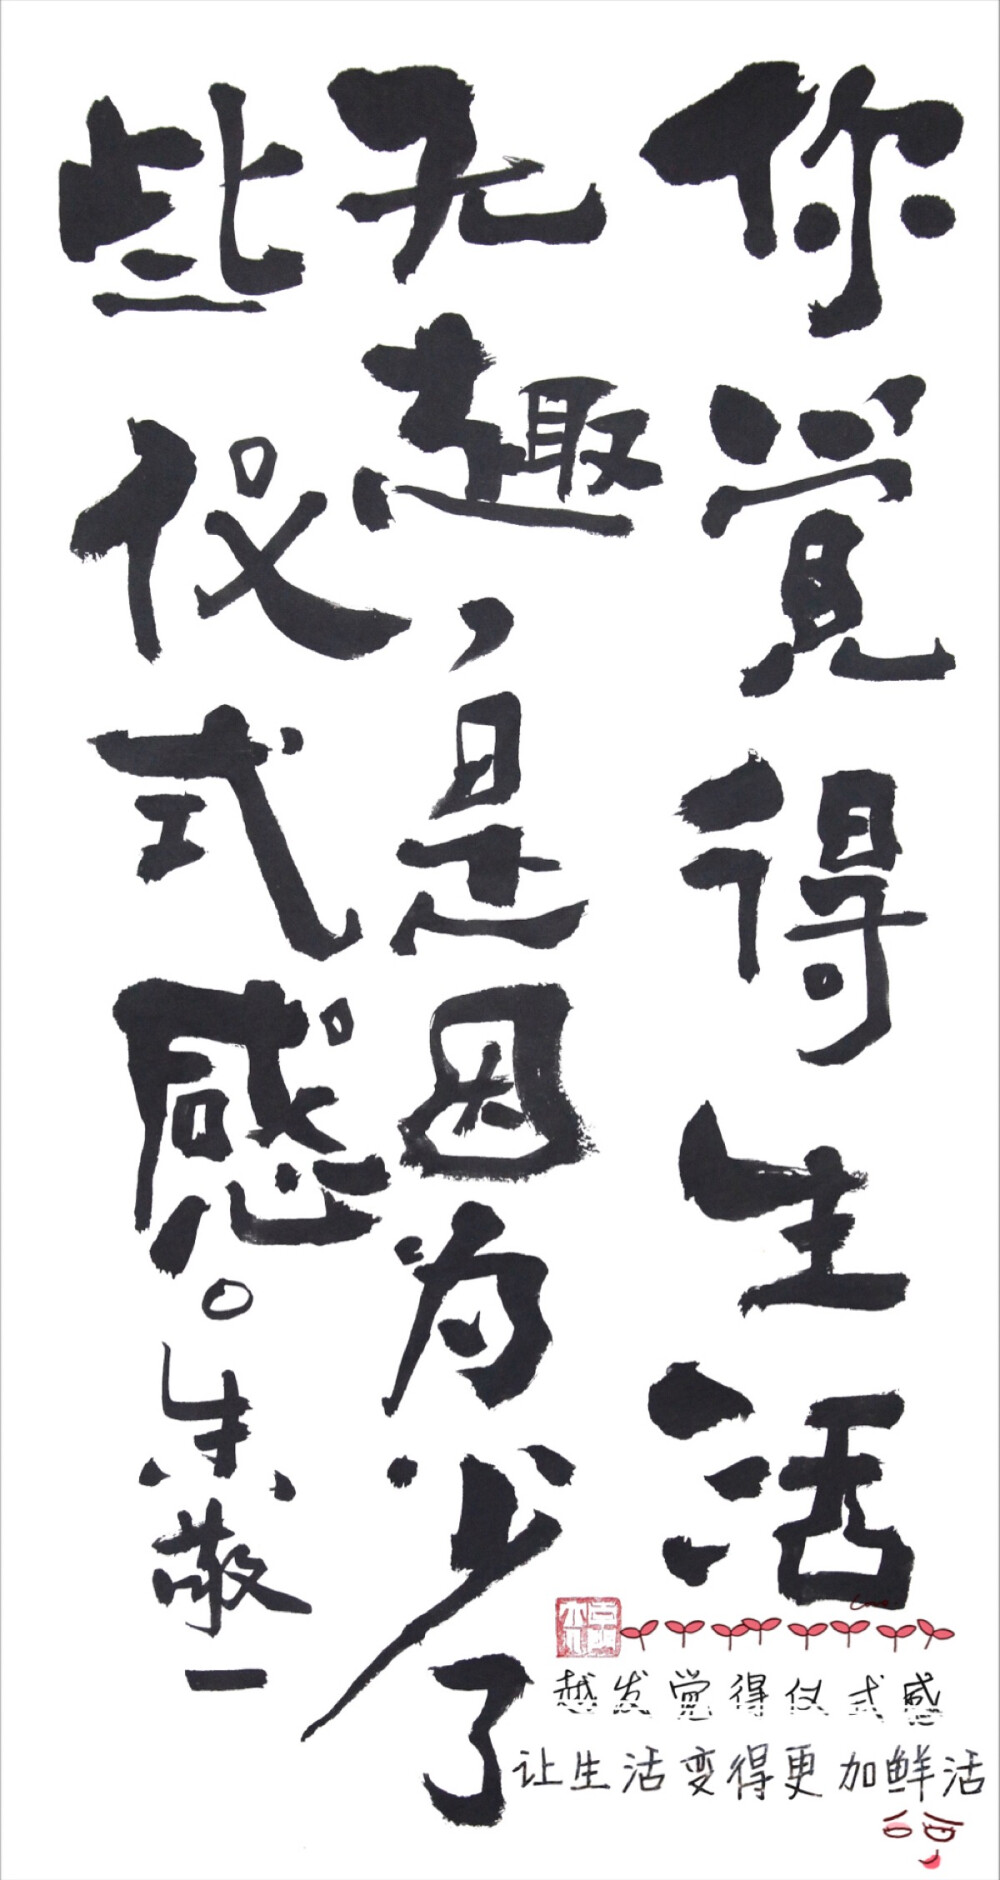 你觉得生活
无趣，是因为少了
些仪式感。朱敬一
越发觉得仪式感
让生活变得更加鲜活